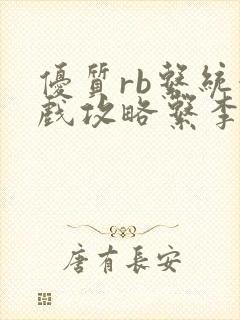 優質rb繫統
戲攻略繫李
唐有長安